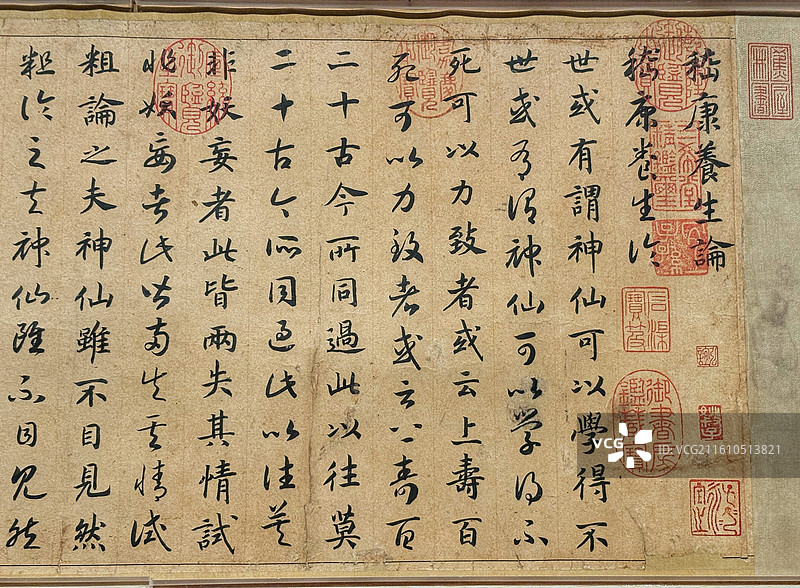 嵇康養生論
嵇康養生論
世或有謂神仙可以學得不
世或有謂神仙可以學得不
死可以力致者或云上壽百
死可以力致者或云上壽百
二十古今所同過此以往莫
二十古今所同過此以往莫
非妖妄者此皆兩失其情試
非妖妄者此皆兩失其情試
粗論之夫神仙雖不目見然
粗論之夫神仙雖不目見然
三希堂精鑑璽
宜子孫
御書房鑑藏寶
VCG
ID:VCG211610513821